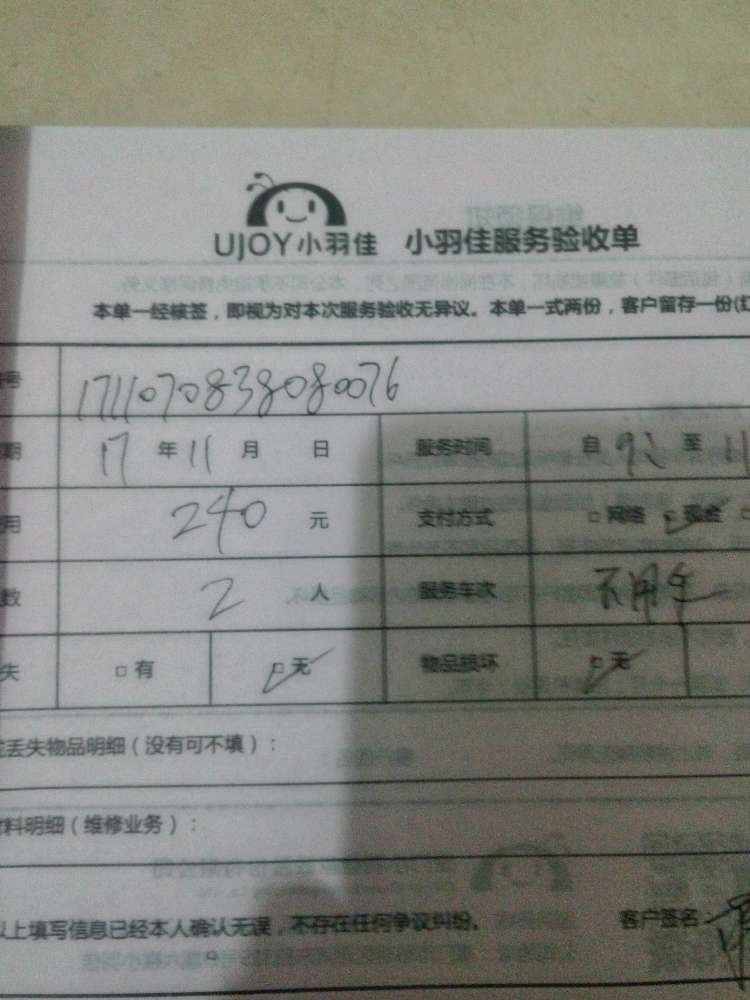 UJOY小羽佳 小羽佳服务验收单
本单一经核签，即视为对本次服务验收无异议。本单一式两份，客户留存一份(红
号 1711070838080076
期 17年11月 日 服务时间 自 至11
用 240元 支付方式 □网络 ☑现金
数 2人 服务车次 不用车
失 □有 ☑无 物品损坏 ☑无
丢失物品明细（没有可不填）：
料明细（维修业务）：
以上填写信息已经本人确认无误，不存在任何争议纠纷。 客户签名